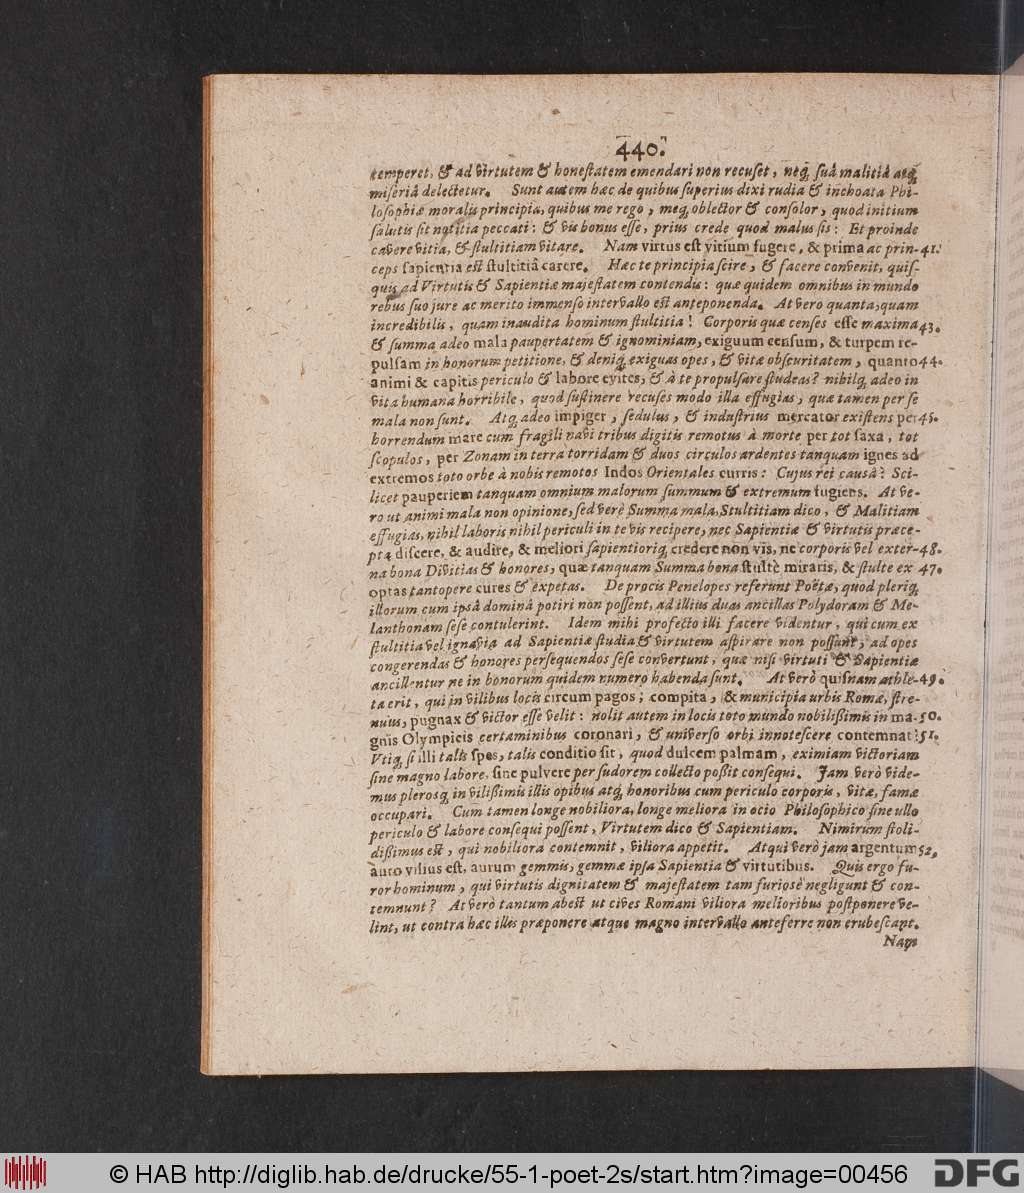 440.
temperet, & ad virtutem & honeſtatem emendari non recuſet, neq; ſuâ malitiâ atq;
miſeriâ delectetur. Sunt autem hæc de quibus ſuperius dixi rudia & inchoata Phi-
loſophiæ moralis principia, quibus me rego, meq; oblector & conſolor, quod initium
ſalutis ſit notitia peccati: & vis bonus eſſe, prius crede quod malus ſis: Et proinde
cavere vitia, & ſtultitiam vitare. Nam virtus eſt vitium fugere, & prima ac prin- 41.
ceps ſapientia eſt ſtultitiâ carere. Hæc te principia ſcire, & facere convenit, quiſ-
quis ad Virtutis & Sapientiæ majeſtatem contendis: quæ quidem omnibus in mundo
rebus ſuo jure ac merito immenſo intervallo eſt anteponenda. At vero quanta, quam
incredibilis, quam inaudita hominum ſtultitia! Corporis quæ cenſes eſſe maxima 43.
& ſumma adeo mala paupertatem & ignominiam, exiguum cenſum, & turpem re-
pulſam in honorum petitione, & deniq; exiguas opes, & vitæ obſcuritatem, quanto 44.
animi & capitis periculo & labore evites, & à te propulſare ſtudeas? nihilq; adeo in
vita humana horribile, quod ſuſtinere recuſes modo illa effugias, quæ tamen per ſe
mala non ſunt. Atq; adeo impiger, ſedulus, & induſtrius mercator exiſtens per 45.
horrendum mare cum fragili navi tribus digitis remotus à morte per tot ſaxa, tot
ſcopulos, per Zonam in terra torridam & duos circulos ardentes tanquam ignes ad
extremos toto orbe à nobis remotos Indos Orientales curris: Cujus rei causâ? Sci-
licet pauperiem tanquam omnium malorum ſummum & extremum fugiens. At ve-
ro ut animi mala non opinione, ſed verè Summa mala, Stultitiam dico, & Malitiam
effugias, nihil laboris nihil periculi in te vis recipere, nec Sapientiæ & virtutis præce-
pta diſcere, & audire, & meliori ſapientioriq; credere non vis, ne corporis vel exter- 48.
na bona Divitias & honores, quæ tanquam Summa bona ſtultè miraris, & ſtulte ex 47.
optas tantopere cures & expetas. De procis Penelopes referunt Poëtæ, quod pleriq;
illorum cum ipsâ dominâ potiri non poſſent, ad illius duas ancillas Polydoram & Me-
lanthonam ſeſe contulerint. Idem mihi profecto illi facere videntur, qui cum ex
ſtultitia vel ignavia ad Sapientiæ ſtudia & virtutem aſpirare non poſſunt, ad opes
congerendas & honores perſequendos ſeſe convertunt, quæ niſi virtuti & Sapientiæ
ancillentur ne in bonorum quidem numero habenda ſunt. At verò quiſnam athle- 49.
ta erit, qui in vilibus locis circum pagos, compita, & municipia urbis Romæ, ſtre-
nuus, pugnax & victor eſſe velit: nolit autem in locis toto mundo nobiliſſimis in ma- 50.
gnis Olympicis certaminibus coronari, & univerſo orbi innoteſcere contemnat? 51.
Utiq; ſi illi talis ſpes, talis conditio ſit, quod dulcem palmam, eximiam victoriam
ſine magno labore, ſine pulvere per ſudorem collecto poſſit conſequi. Jam verò vide-
mus plerosq; in viliſſimis illis opibus atq; honoribus cum periculo corporis, vitæ, famæ
occupari. Cum tamen longe nobiliora, longe meliora in ocio Philoſophico ſine ullo
periculo & labore conſequi poſſent, Virtutem dico & Sapientiam. Nimirum ſtoli-
diſſimus eſt, qui nobiliora contemnit, viliora appetit. Atqui verò jam argentum 52.
auro vilius eſt, aurum gemmis, gemmæ ipſa Sapientia & virtutibus. Quis ergo fu-
ror hominum, qui virtutis dignitatem & majeſtatem tam furiosè negligunt & con-
temnunt? At verò tantum abeſt ut cives Romani viliora melioribus poſtponere ve-
lint, ut contra hæc illis præponere atque magno intervallo anteferre non erubeſcant.
Nam
© HAB http://diglib.hab.de/drucke/55-1-poet-2s/start.htm?image=00456
DFG